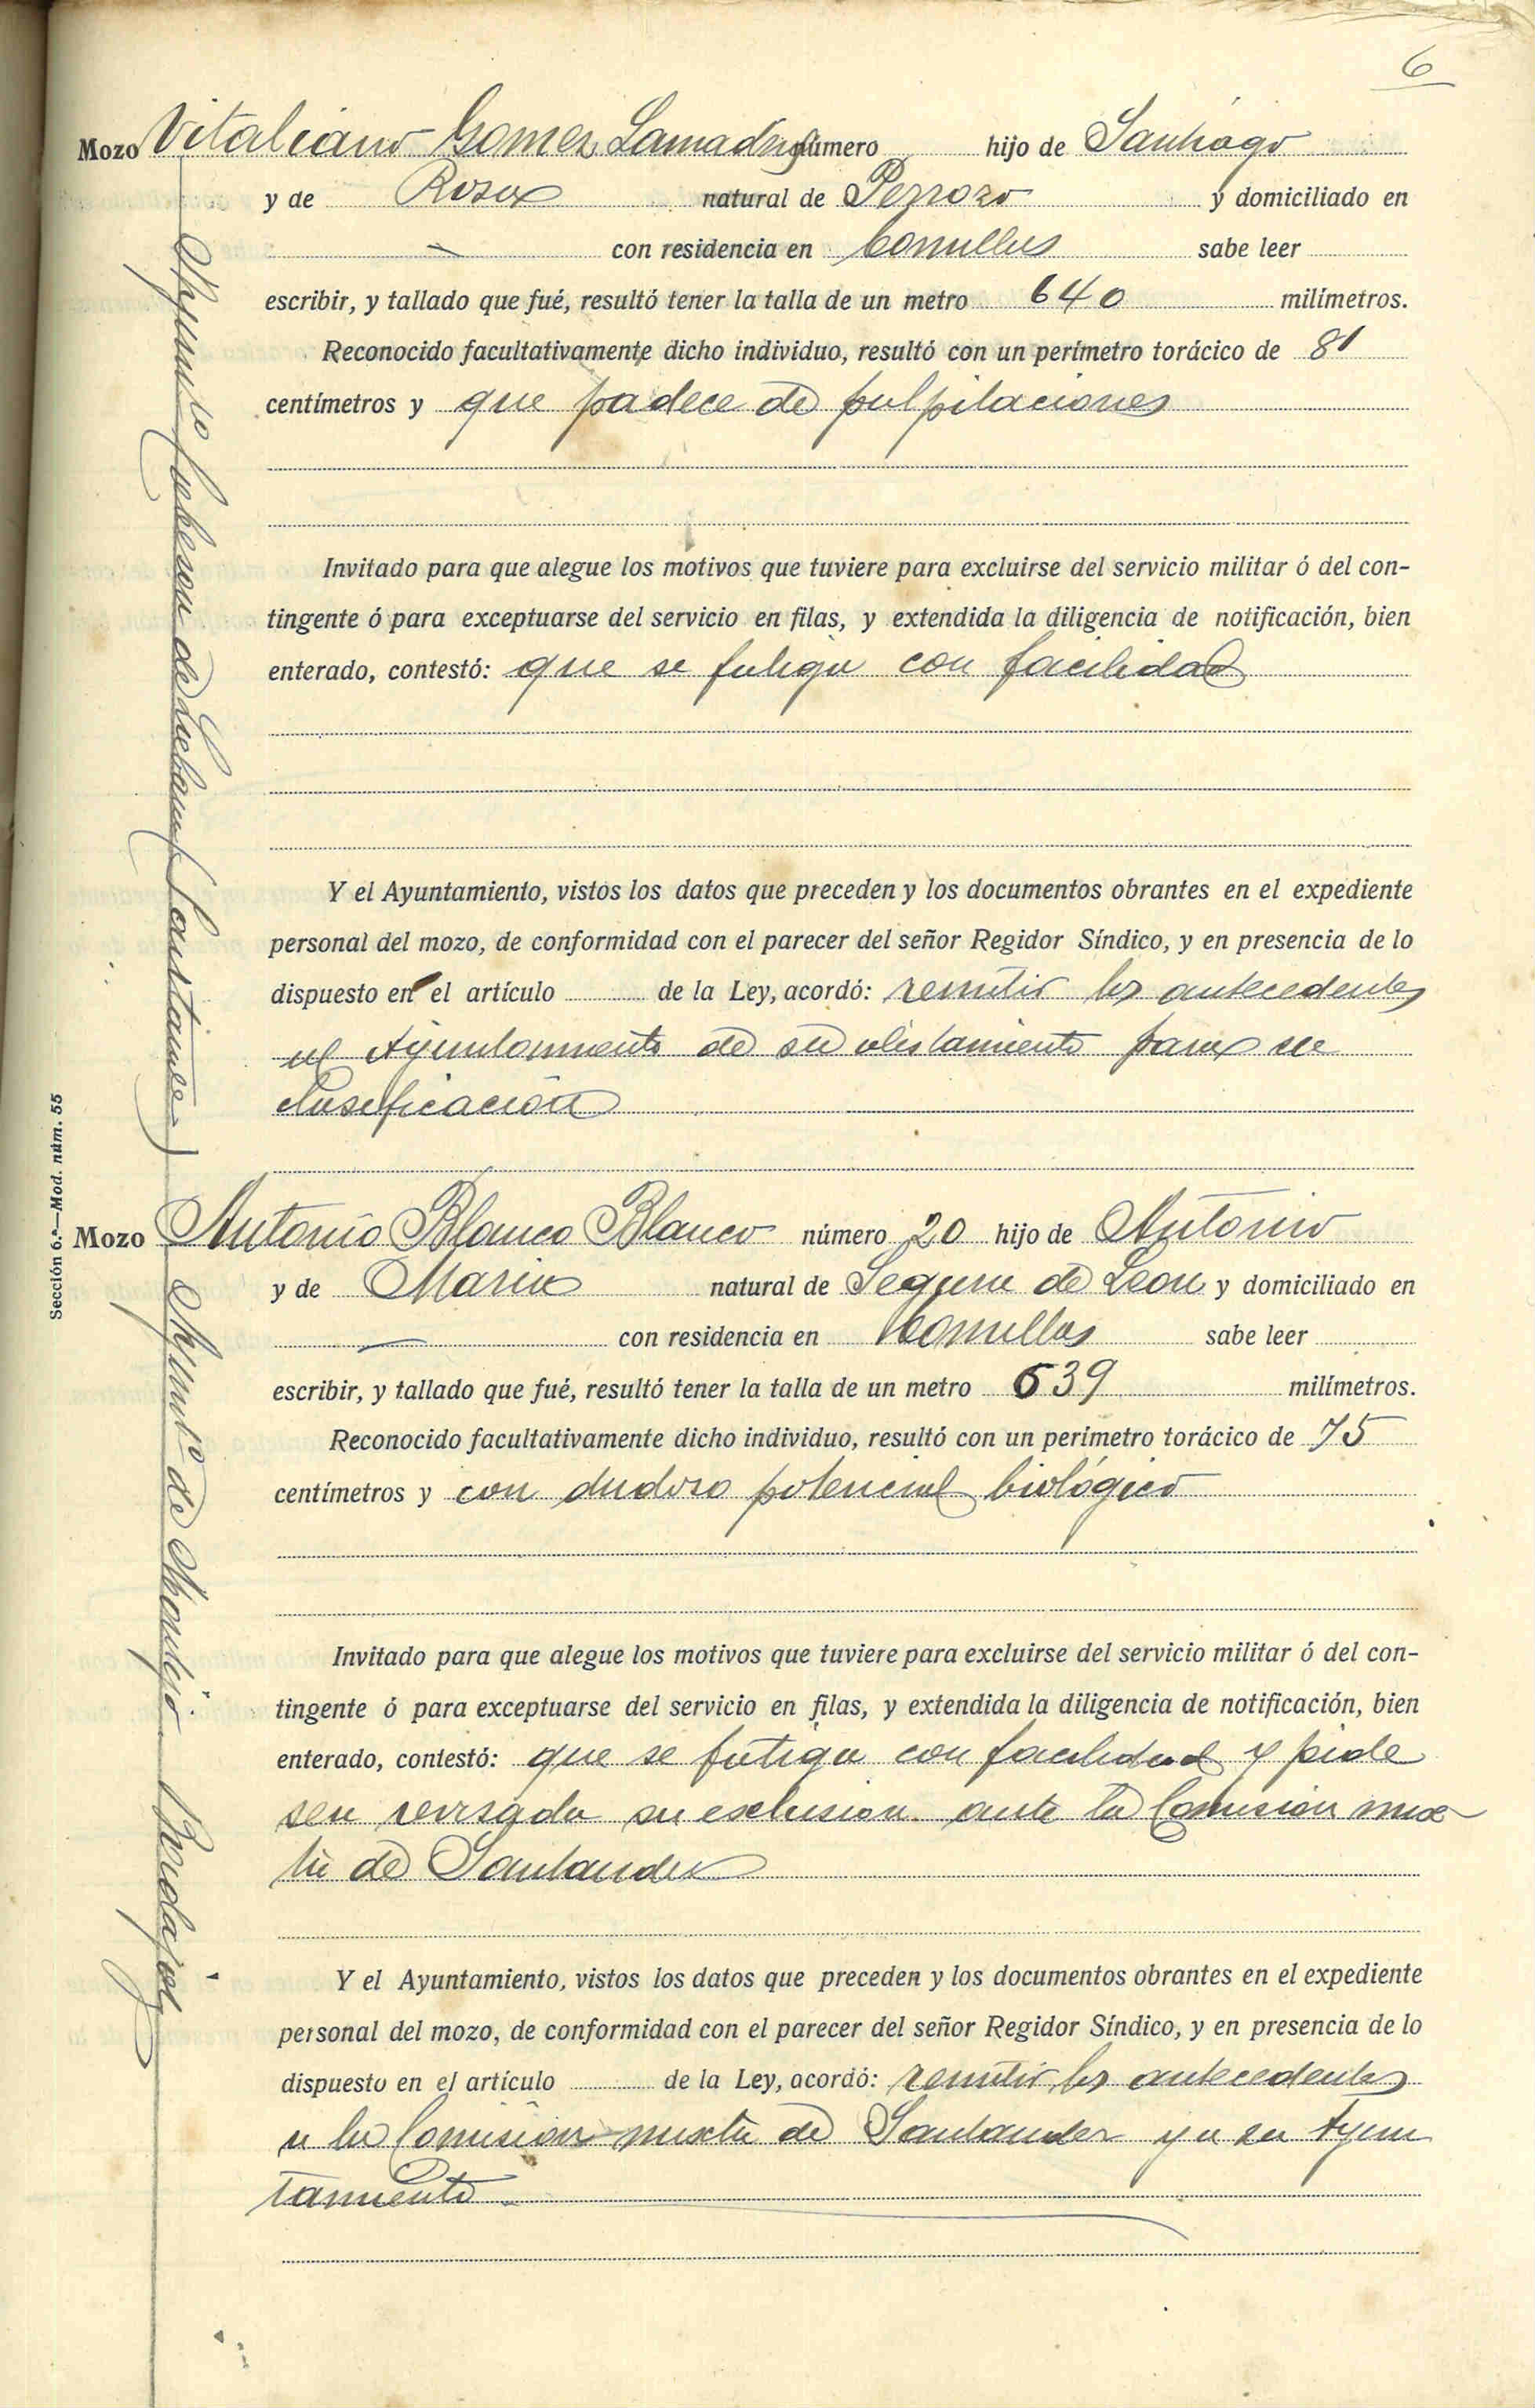 6
Mozo Vitaliano Gomez Lamadrid número hijo de Santiago
y de Rosa natural de Perrozo y domiciliado en
— con residencia en Comillas sabe leer
escribir, y tallado que fué, resultó tener la talla de un metro 640 milímetros.
Reconocido facultativamente dicho individuo, resultó con un perímetro torácico de 81
centímetros y que padece de palpitaciones
Invitado para que alegue los motivos que tuviere para excluirse del servicio militar ó del con-
tingente ó para exceptuarse del servicio en filas, y extendida la diligencia de notificación, bien
enterado, contestó: que se fatiga con facilidad
Y el Ayuntamiento, vistos los datos que preceden y los documentos obrantes en el expediente
personal del mozo, de conformidad con el parecer del señor Regidor Síndico, y en presencia de lo
dispuesto en el artículo de la Ley, acordó: remitir los antecedentes
al Ayuntamiento de su alistamiento para su
clasificación
Ayunto Cabezon de Liebana (Santander)
Sección 6.ª—Mod. núm. 55
Mozo Antonio Blanco Blanco número 20 hijo de Antonio
y de Maria natural de Segura de Leon y domiciliado en
— con residencia en Comillas sabe leer
escribir, y tallado que fué, resultó tener la talla de un metro 639 milímetros.
Reconocido facultativamente dicho individuo, resultó con un perímetro torácico de 75
centímetros y con dudoso potencial biológico
Invitado para que alegue los motivos que tuviere para excluirse del servicio militar ó del con-
tingente ó para exceptuarse del servicio en filas, y extendida la diligencia de notificación, bien
enterado, contestó: que se fatiga con facilidad y pide
sea revisada su esclusion ante la Comision mix
ta de Santander
Y el Ayuntamiento, vistos los datos que preceden y los documentos obrantes en el expediente
personal del mozo, de conformidad con el parecer del señor Regidor Síndico, y en presencia de lo
dispuesto en el artículo de la Ley, acordó: remitir los antecedentes
a la Comision mixta de Santander y a su Ayun
tamiento
Ayunto de Badajoz